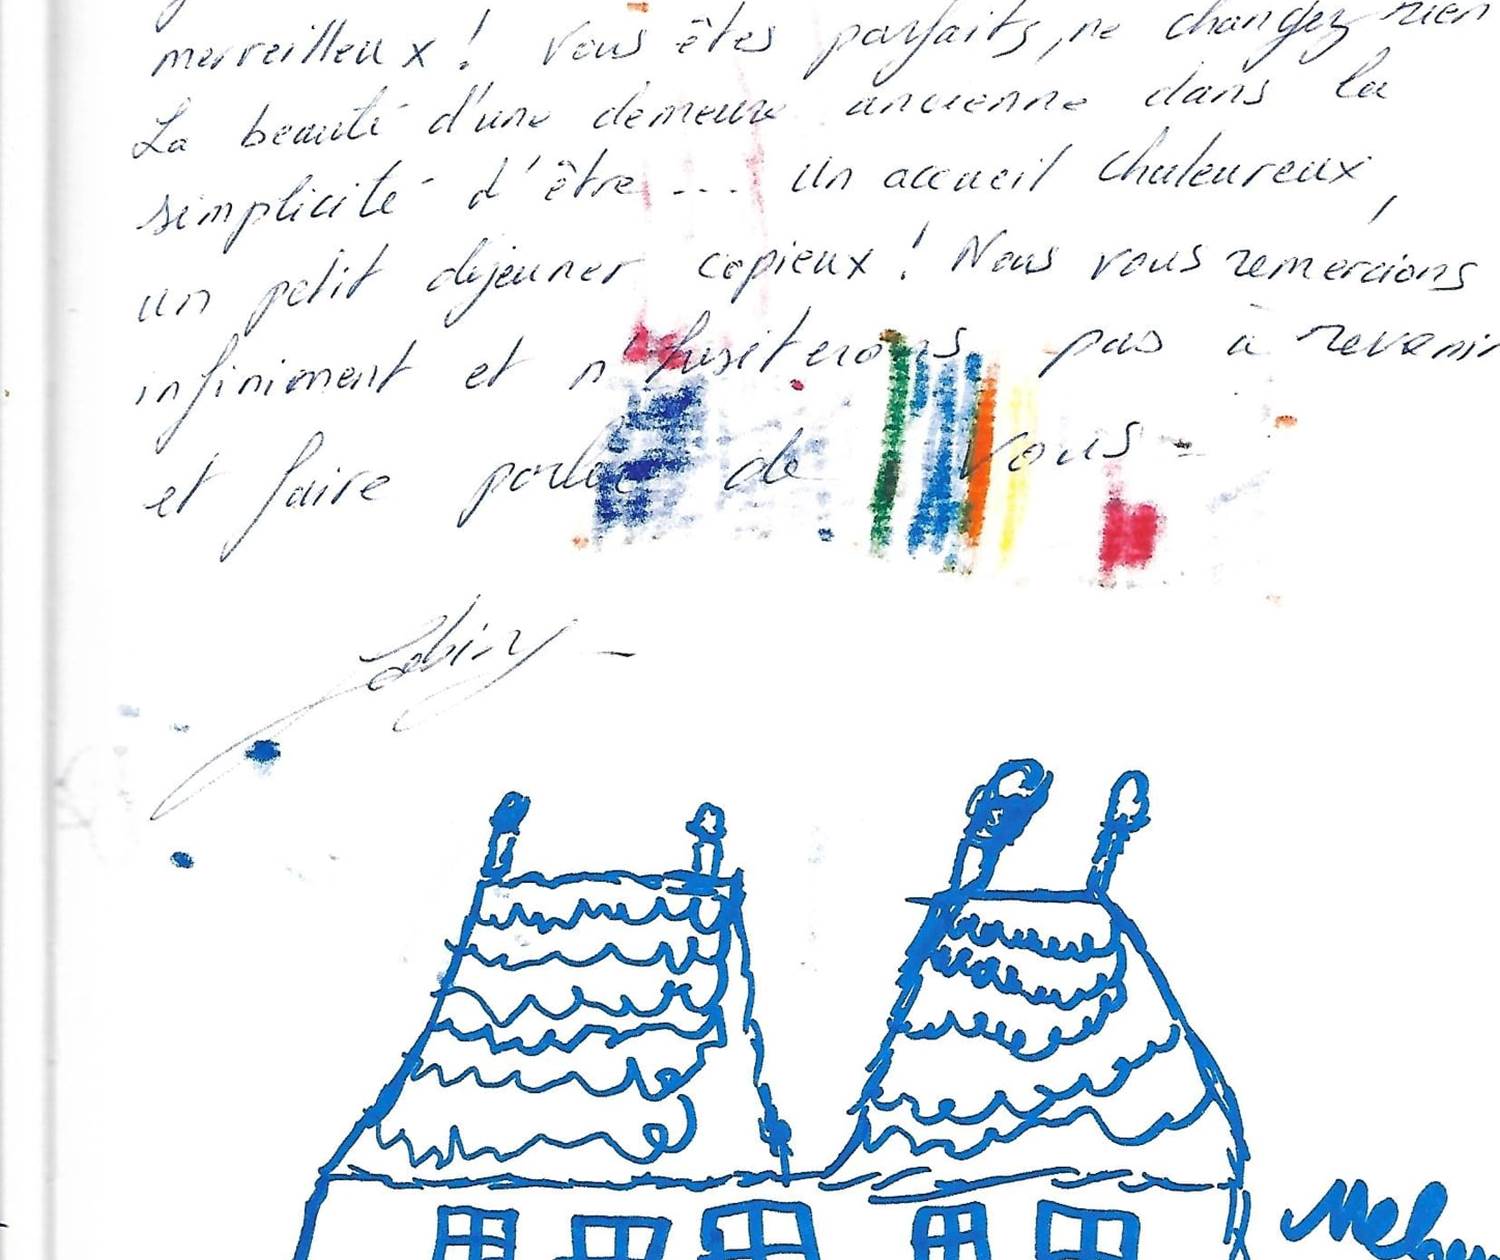 merveilleux ! Vous êtes parfaits, ne changez rien
La beauté d'une demeure ancienne dans la
simplicité d'être --- Un accueil chaleureux,
un petit déjeuner copieux ! Nous vous remercions
infiniment et n'hésiterons pas à revenir
et faire parler de vous -